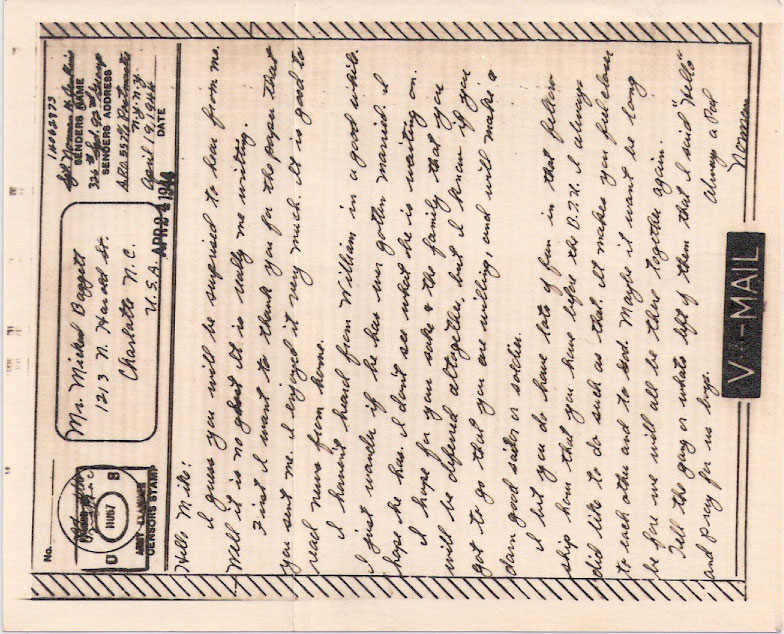 No.
CENSORS STAMP
Mr. Michel Baggett
1213 N. Harold St.
Charlotte N.C.
U.S.A.
14162873
Sgt Norman H.
SENDERS NAME
326
SENDERS ADDRESS
A.P.O. 557 % Postmaster
N.Y. N.Y.
April 19, 1944
DATE
Hello Mike:
I guess you will be surprised to hear from me.
Well it is no ghost it is really me writing.
First I want to thank you for the paper that
you sent me. I enjoyed it very much. It is good to
read news from home.
I haven't heard from William in a good while.
I just wonder if he has ever gotten married. I
hope he has. I don't see what he is waiting on.
I hope for you sake & the family that you
will be defered altogether, but I know if you
got to go that you are willing, and will make a
darn good sailor or soldier.
I bet you do have lots of fun in that fellow
ship hour that you have before the B.T.U. I always
did like to do such as that. It makes you feel close
to each other and to God. Maybe it want be long
be fore we will all be there together again.
Tell the gang or whats left of them that I said "Hello"
and pray for us boys.
Always a Pal
Norman
V···—MAIL